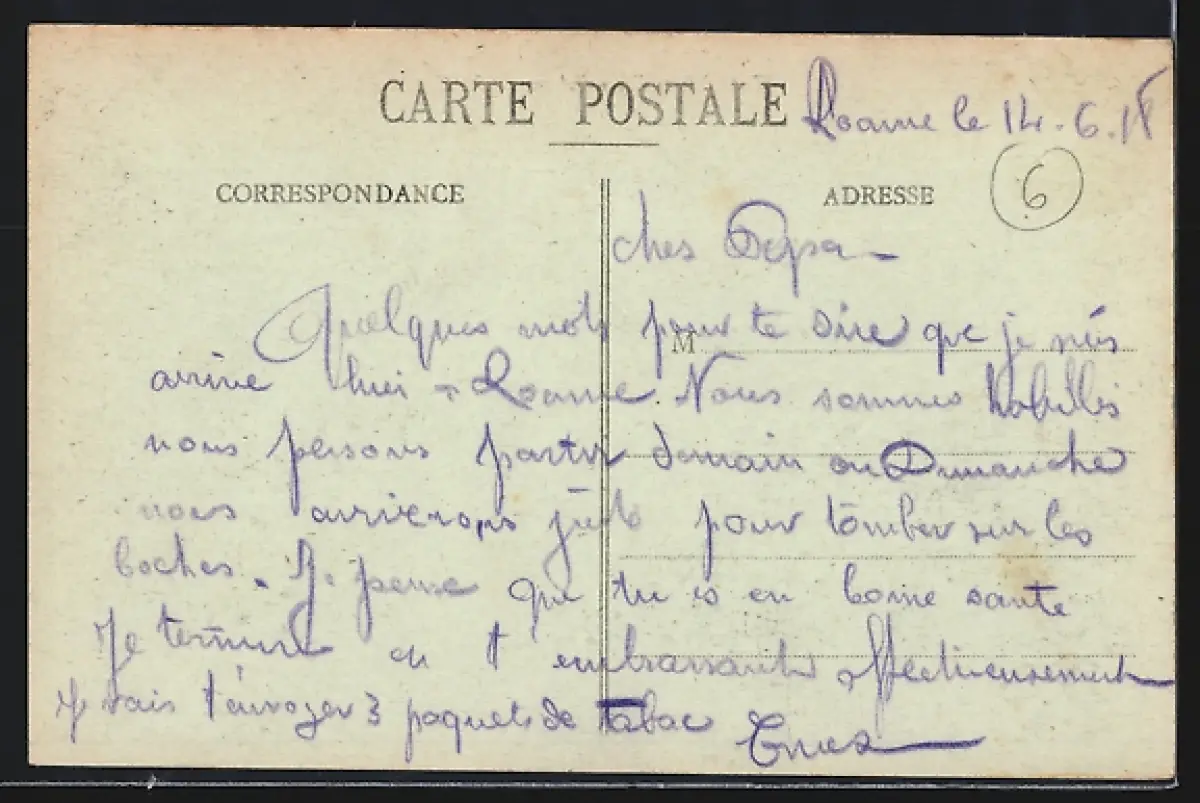 CARTE POSTALE
Roanne le 14.6.18
CORRESPONDANCE
ADRESSE
6
cher Papa
Quelques mots pour te dire que je suis
M
arrive hier a Roanne Nous sommes habillés
nous pensons partir demain ou Dimanche
nous arriverons juste pour tomber sur les
boches. Je pense que tu es en bonne sante
Je termine en t embrassant affectueusement
Je vais t'envoyer 3 paquets de tabac